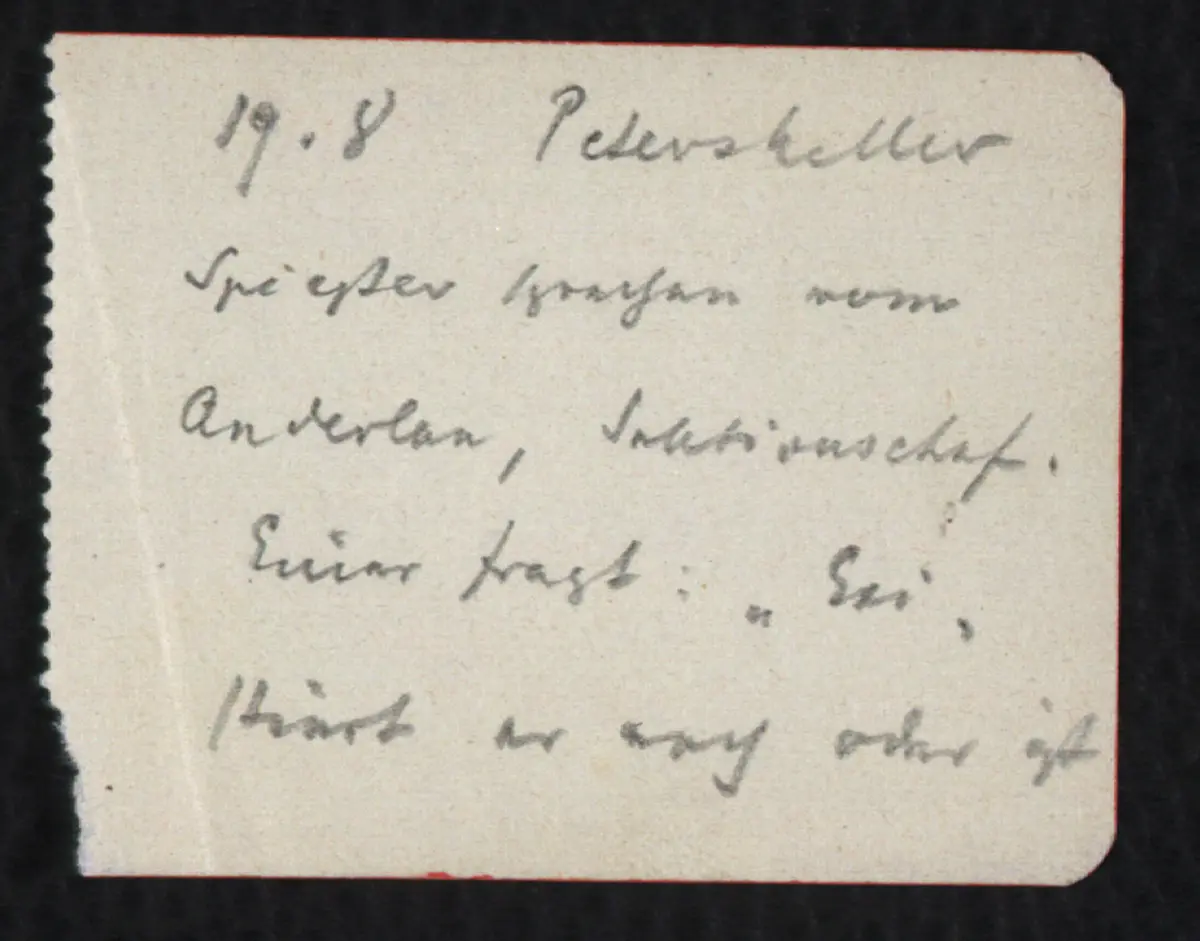 19. 8 Peterskeller
Spießer sprachen vom
Anderlan, Sektionschef.
Einer fragt: „Sei,
stiert er noch oder ist